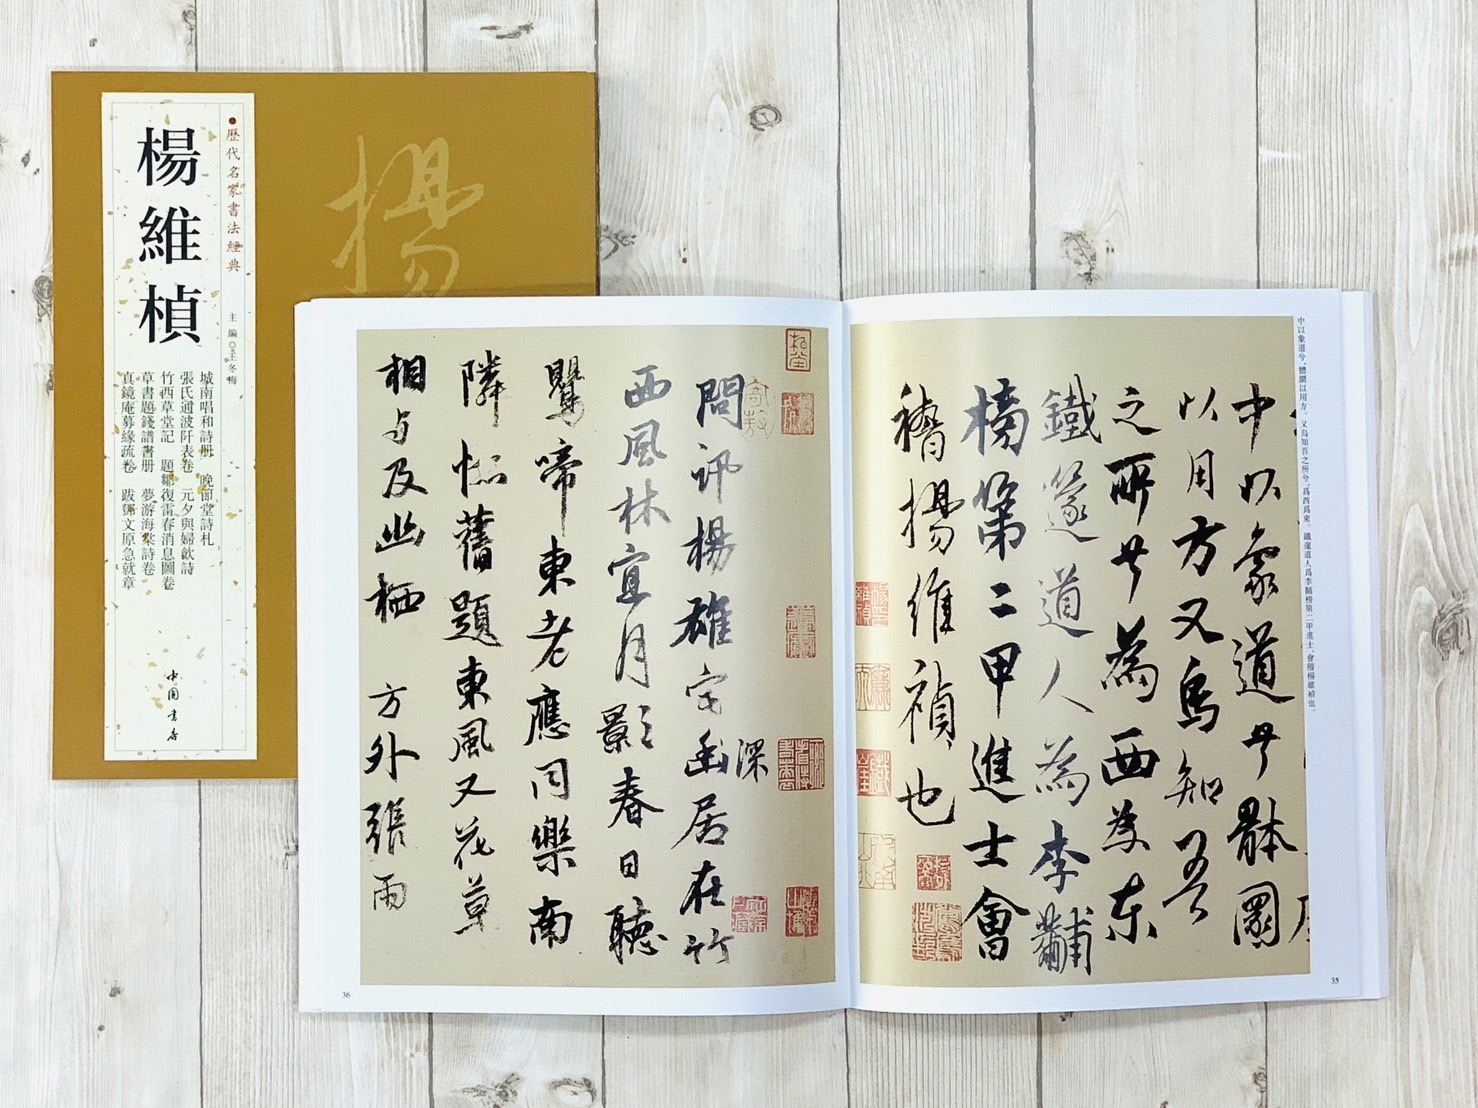 歷代名家書法經典
主編◎王冬梅
楊維楨
城南唱和詩冊　晚節堂詩札
張氏通波阡表卷　元夕與婦飲詩
竹西草堂記　題鄒復雷春消息圖卷
草書題錢譜書冊　夢游海棠詩卷
真鏡庵募緣疏卷　跋鄧文原急就章
中国书店
楊
中以象道兮，體圓以用方。又烏知吾之所兮，爲西爲東。鐵篴道人爲李黼榜第二甲進士，會稽楊維禎也。
中以象道兮體圓
以用方又烏知吾
之所兮為西為东
鐵篴道人為李黼
榜第二甲進士會
稽楊維禎也
35
問訊楊雄宅幽居在竹
深
西風林宜月影春日聽
鸎啼東老應同樂南
隣惱舊題東風又花草
相与及幽栖　方外張雨
36